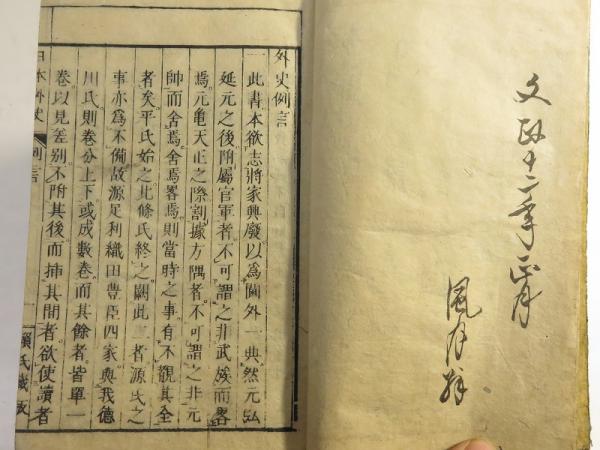 文政十二年正月
風月
外史例言
一此書本欲志將家興廢以爲閫外一典然元弘
延元之後附屬官軍者不可謂之非武族而畧
焉元亀天正之際割據方隅者不可謂之非元
帥而舍焉舍焉畧焉則當時之事有不觀其全
者矣平氏始之北條氏終之闕此二者源氏之
事亦爲不備故源足利織田豊臣四家與我德
川氏則卷分上下或成數卷而其餘者皆單一
卷以見差别不附其後而挿其間者欲使讀者
日本外史 例言 一 頼氏藏